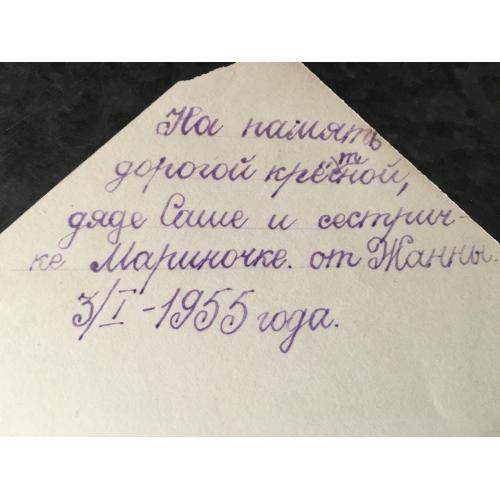 На память
дорогой крёстной,
дяде Саше и сестрич-
ке Мариночке. от Жанны.
3/I-1955 года.